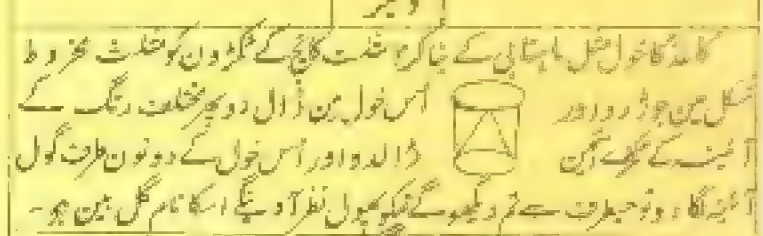 دیگر
کاغذ کا خول مثل ماہتابی کے بنا کر تین کانچ کے ٹکڑوں کو مثلث مخروط
شکل مین جوڑ دو اور اُس خول مین ڈال دو پھر مختلف رنگ کے
آئینے کے ٹکڑے اُسمین ڈالدو اور اُس خول کے دونون طرف گول
آئینہ لگا دو توجسطرف سے تم دیکھوگے تمکو پھول نظر آوینگے اسکا نام گل بین ہو۔